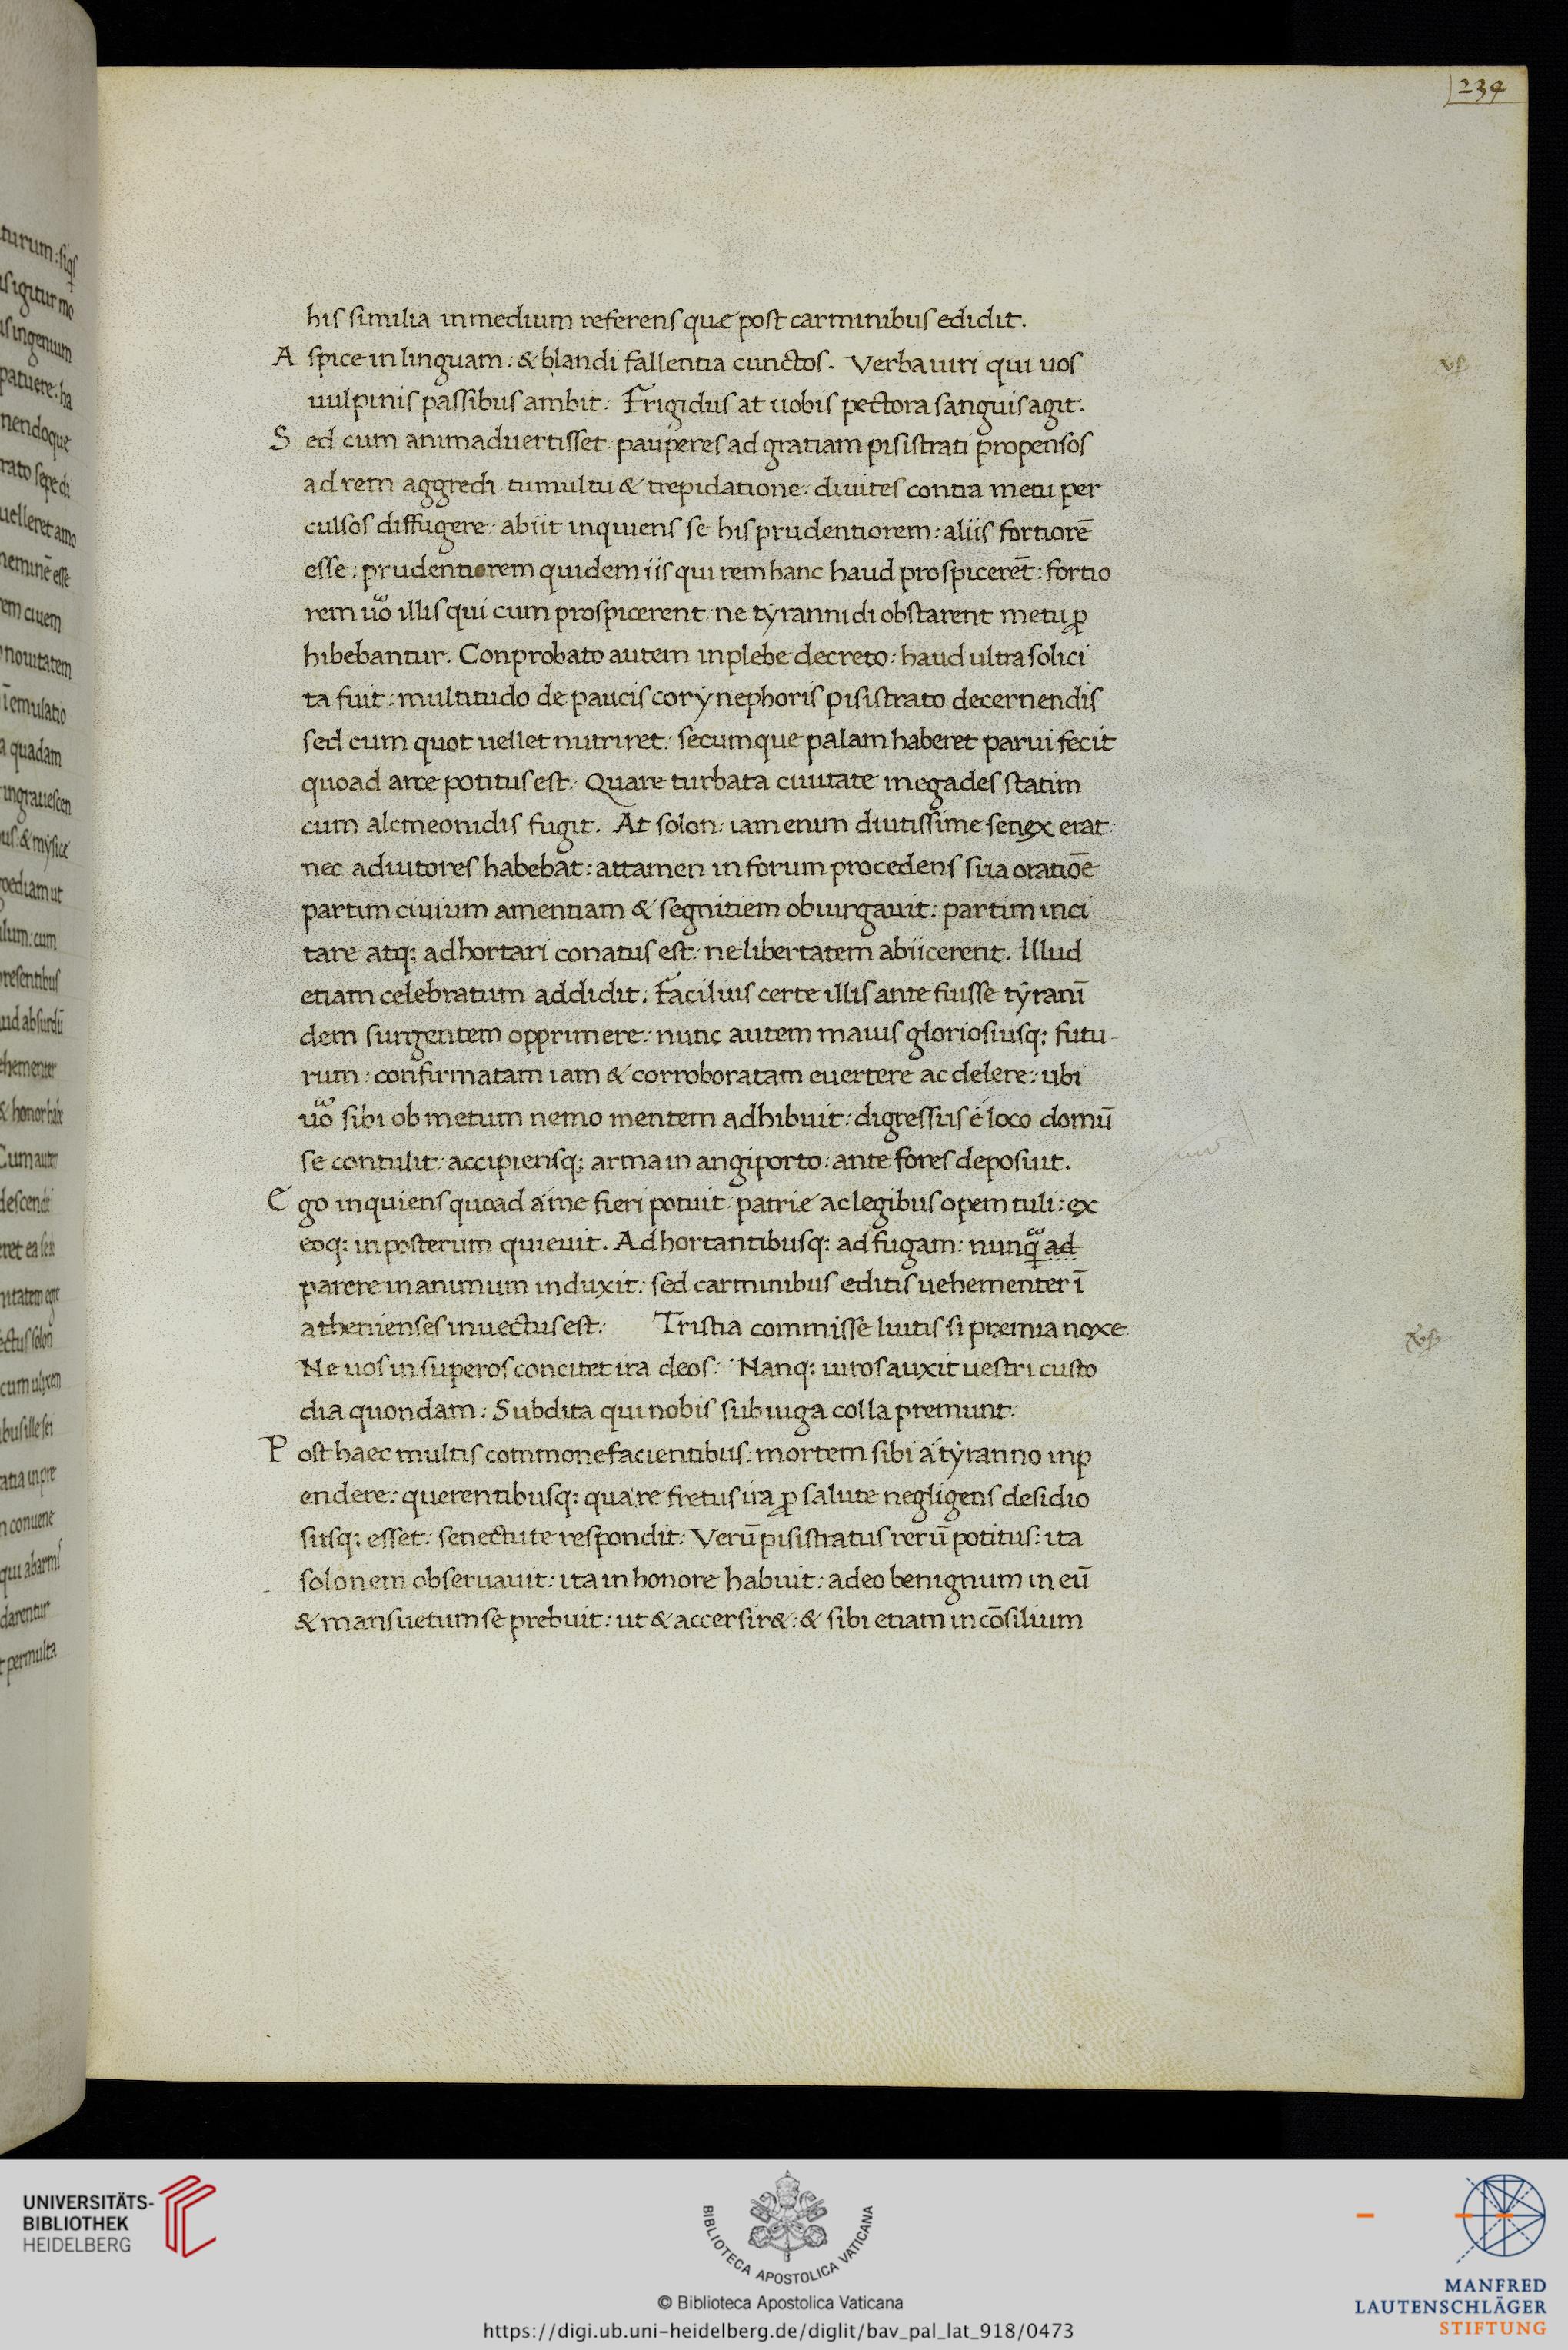 234
his similia in medium referens que post carminibus edidit.
Aspice in linguam: & blandi fallentia cunctos. Verba uiri qui uos
uulpinis passibus ambit: Frigidus at uobis pectora sanguis agit.
Sed cum animaduertisset pauperes ad gratiam pisistrati propensos
ad rem aggredi tumultu & trepidatione: diuites contra metu per
culsos diffugere: abiit inquiens se his prudentiorem: aliis fortiorē
esse: prudentiorem quidem iis qui rem hanc haud prospicerēt: fortio
rem uo illis qui cum prospicerent ne tyrannidi obstarent metu ꝓ
hibebantur. Conprobato autem in plebe decreto: haud ultra solici
ta fuit: multitudo de paucis corynephoris pisistrato decernendis
sed cum quot uellet nutriret: secumque palam haberet parui fecit
quoad arce potitus est. Quare turbata ciuitate megades statim
cum alcmeonidis fugit. At solon: iam enim diutissime senex erat
nec adiutores habebat: attamen in forum procedens sua oratiōe
partim ciuium amentiam & segnitiem obiurgauit: partim inci
tare atq; adhortari conatus est: ne libertatem abiicerent. Illud
etiam celebratum addidit: Facilius certe illis ante fuisse tyranī
dem surgentem opprimere: nunc autem maius gloriosiusq; futu-
rum: confirmatam iam & corroboratam euertere ac delere: ubi
uo sibi ob metum nemo mentem adhibuit: digressus é loco domū
se contulit: accipiensq; arma in angiporto: ante fores deposuit.
Ego inquiens quoad a me fieri potuit patrie ac legibus opem tuli: ex
eoq; in posterum quieuit. Adhortantibusq; ad fugam: nunq̄ ad
parere in animum induxit: sed carminibus editis uehementer ī
athenienses inuectus est: Tristia commisse luitis si premia noxe
Ne uos in superos concitet ira deos: Nanq; uiros auxit uestri custo
dia quondam: Subdita qui nobis sub iuga colla premunt:
Post haec multis commonefacientibus: mortem sibi á tyranno inp
endere: querentibusq; quare fretus ita ꝓ salute negligens desidio
susq; esset: senectute respondit: Verū pisistratus rerū potitus: ita
solonem obseruauit: ita in honore habuit: adeo benignum in eū
& mansuetum se prebuit: ut & accersir&: & sibi etiam in cōsilium
UNIVERSITÄTS-
BIBLIOTHEK
HEIDELBERG
BIBLIOTECA APOSTOLICA VATICANA
© Biblioteca Apostolica Vaticana
https://digi.ub.uni-heidelberg.de/diglit/bav_pal_lat_918/0473
MANFRED
LAUTENSCHLÄGER
STIFTUNG